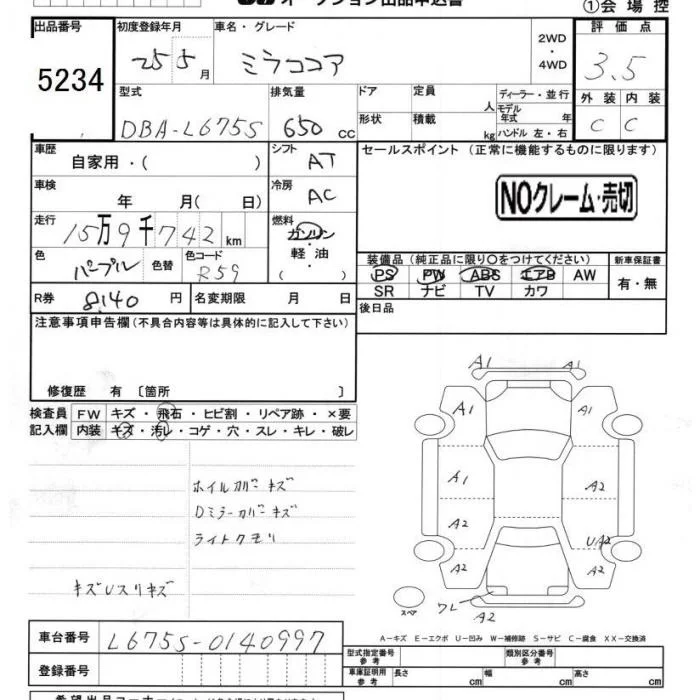 オークション出品申込書
①会場控
出品番号 初度登録年月 車名・グレード 2WD ・ 4WD 評価点
5234 25 5月 ミラココア 3.5
型式 排気量 ドア 定員 人 ディーラー・並行 外装 内装
DBA-L675S 650 cc 形状 積載 kg モデル年式 年 ハンドル 左・右 C C
車歴 自家用・( ) シフト AT セールスポイント (正常に機能するものに限ります)
車検 年 月( 日) 冷房 AC NOクレーム・売切
走行 15万9千742km 燃料 ガソリン 軽油 ( )
色 パープル 色替 色コード R59 装備品(純正品に限り○をつけてください) 新車保証書
PS PW ABS エアB AW 有・無
SR ナビ TV カワ
R券 8140 円 名変期限 月 日 後日品
注意事項申告欄(不具合内容等は具体的に記入して下さい)
修復歴 有 〔箇所 〕
検査員 FW キズ・飛石・ヒビ割・リペア跡・×要
記入欄 内装 キズ・汚レ・コゲ・穴・スレ・キレ・破レ
ホイルカバーキズ
Dミラーカバーキズ
ライトクモリ
キズUスリキズ
A1 A1
A1 A1
A1 A2
A2 UA2
A2 A2
スペア ワレ A2
A-キズ E-エクボ U-凹み W-補修跡 S-サビ C-腐食 XX-交換済
車台番号 L675S-0140997
型式指定番号 参考 類別区分番号 参考
登録番号 車庫証明用 参考 長さ cm 幅 cm 高さ cm